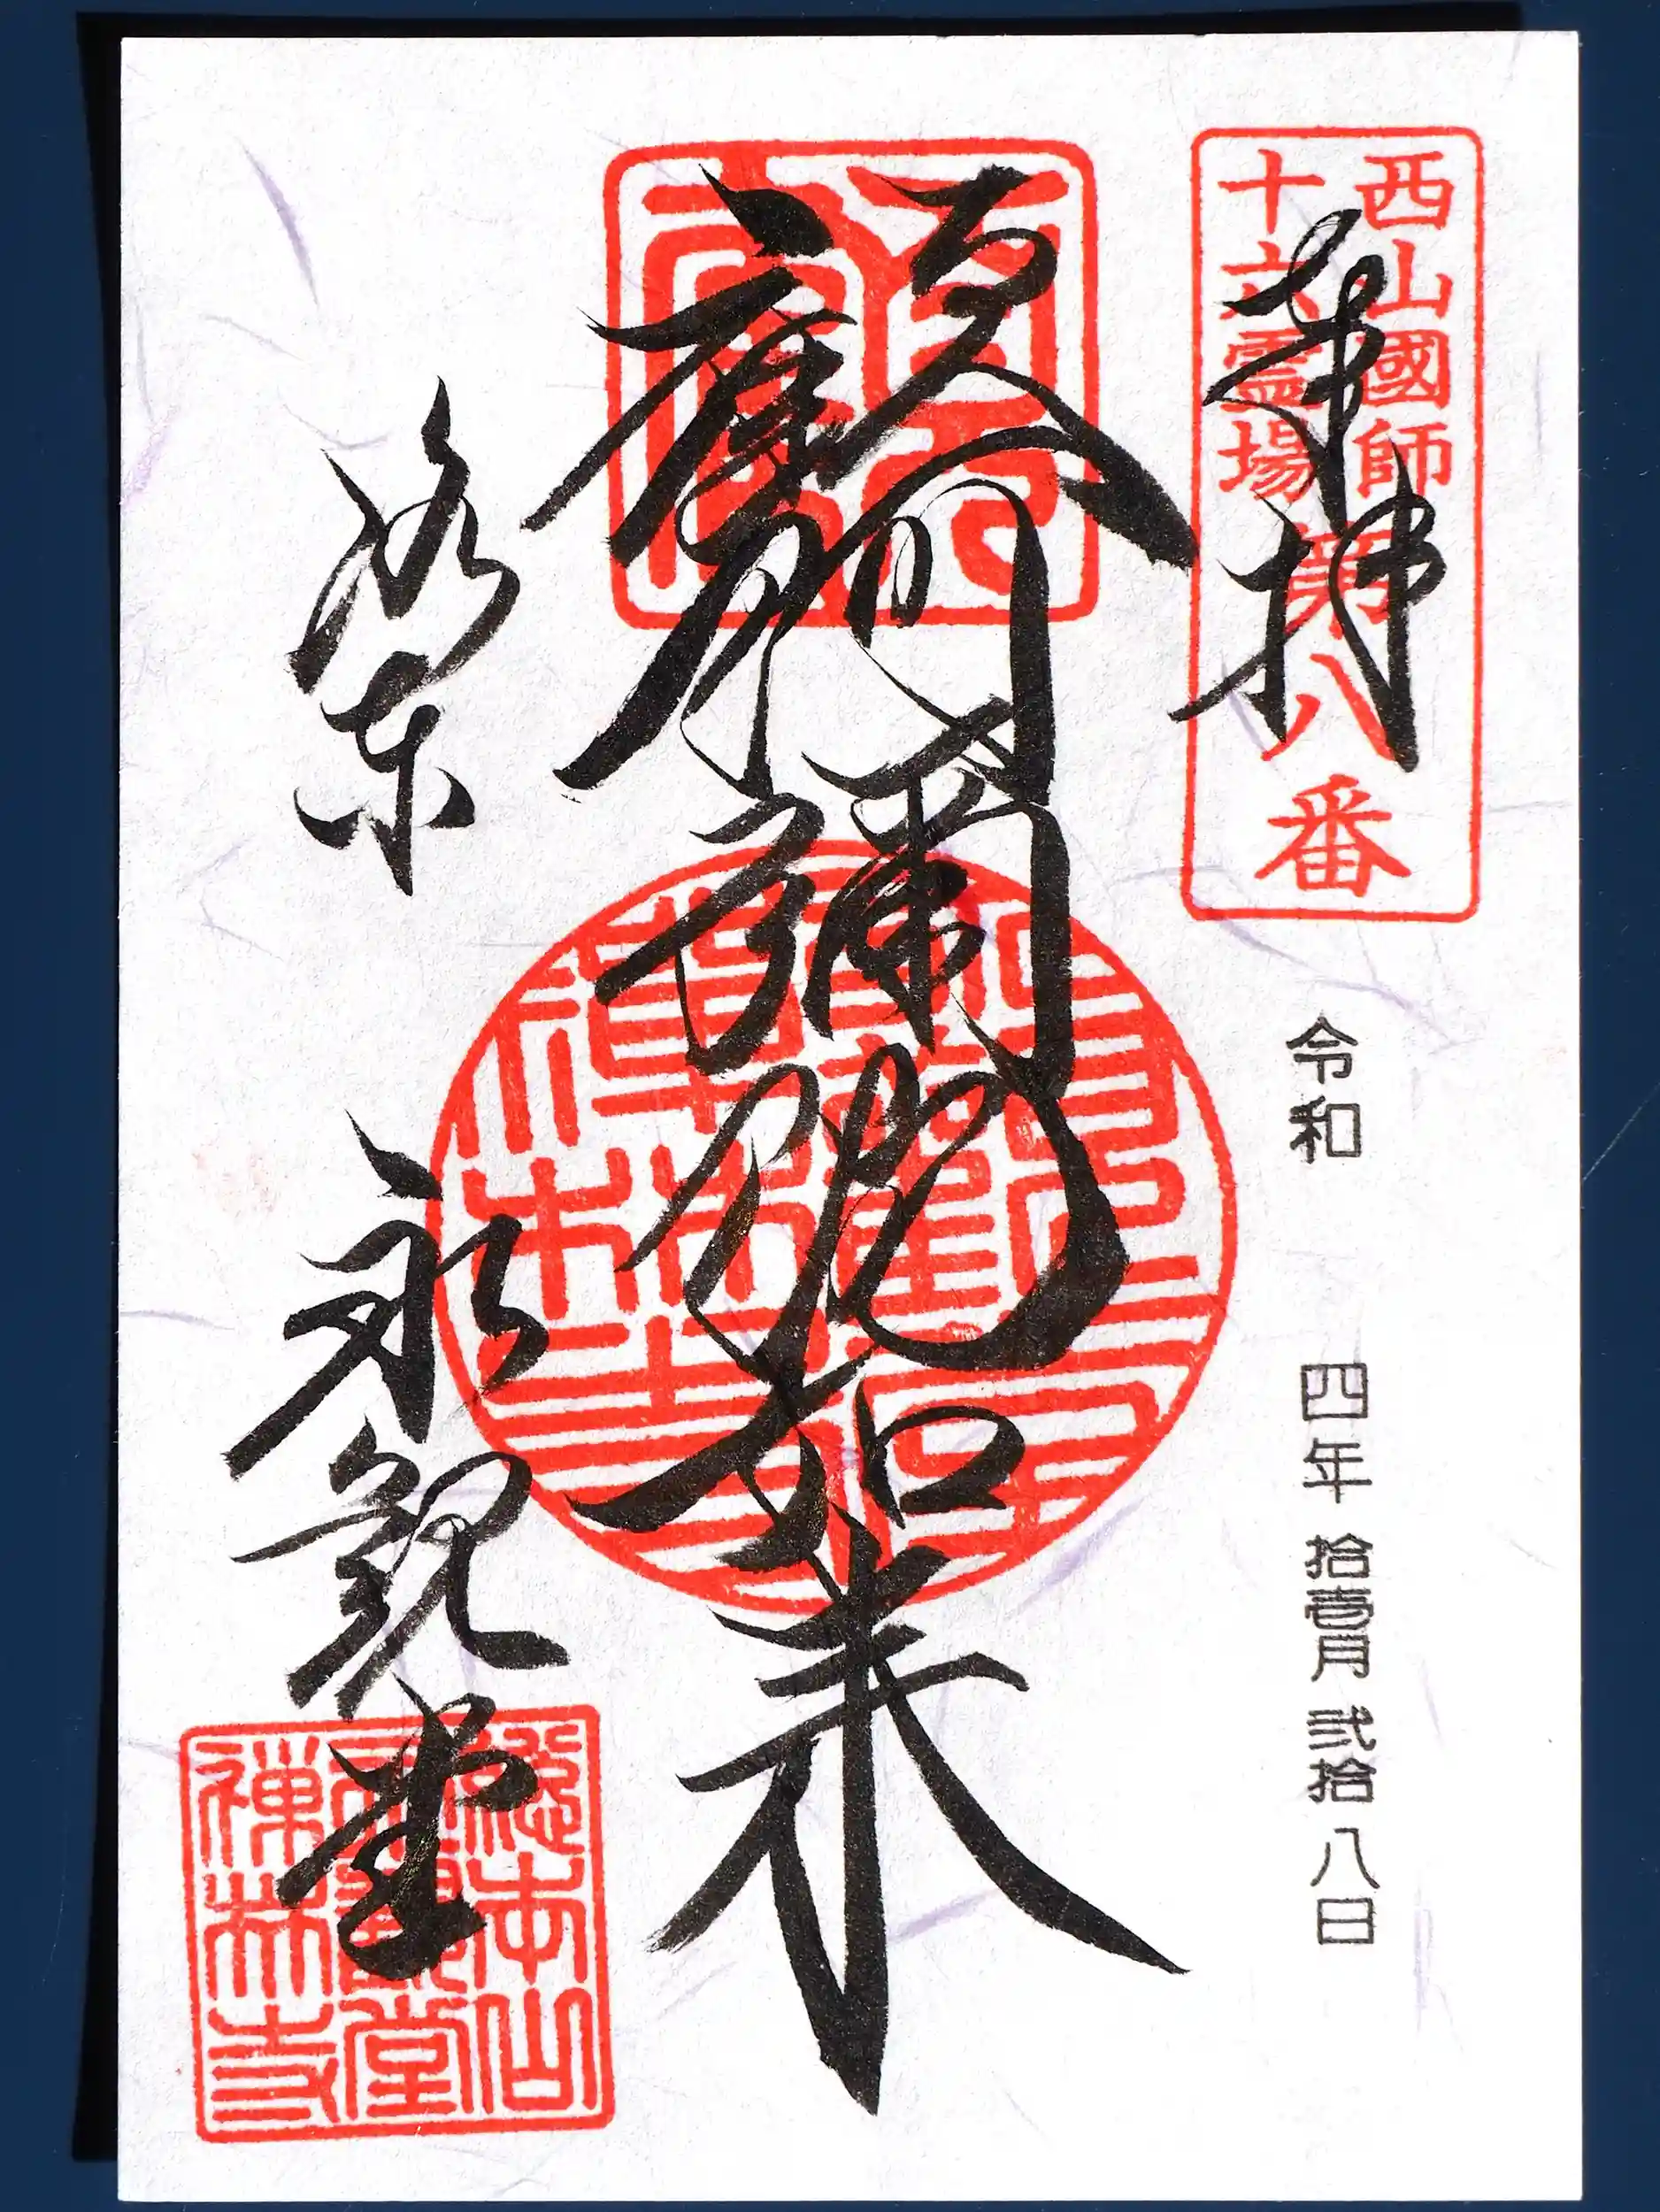 西山國師
十六霊場
第八番
奉拝
令和 四年 拾壹月 弐拾八日
阿彌陀如来
洛東 永観堂
總本山
永觀堂
禅林寺